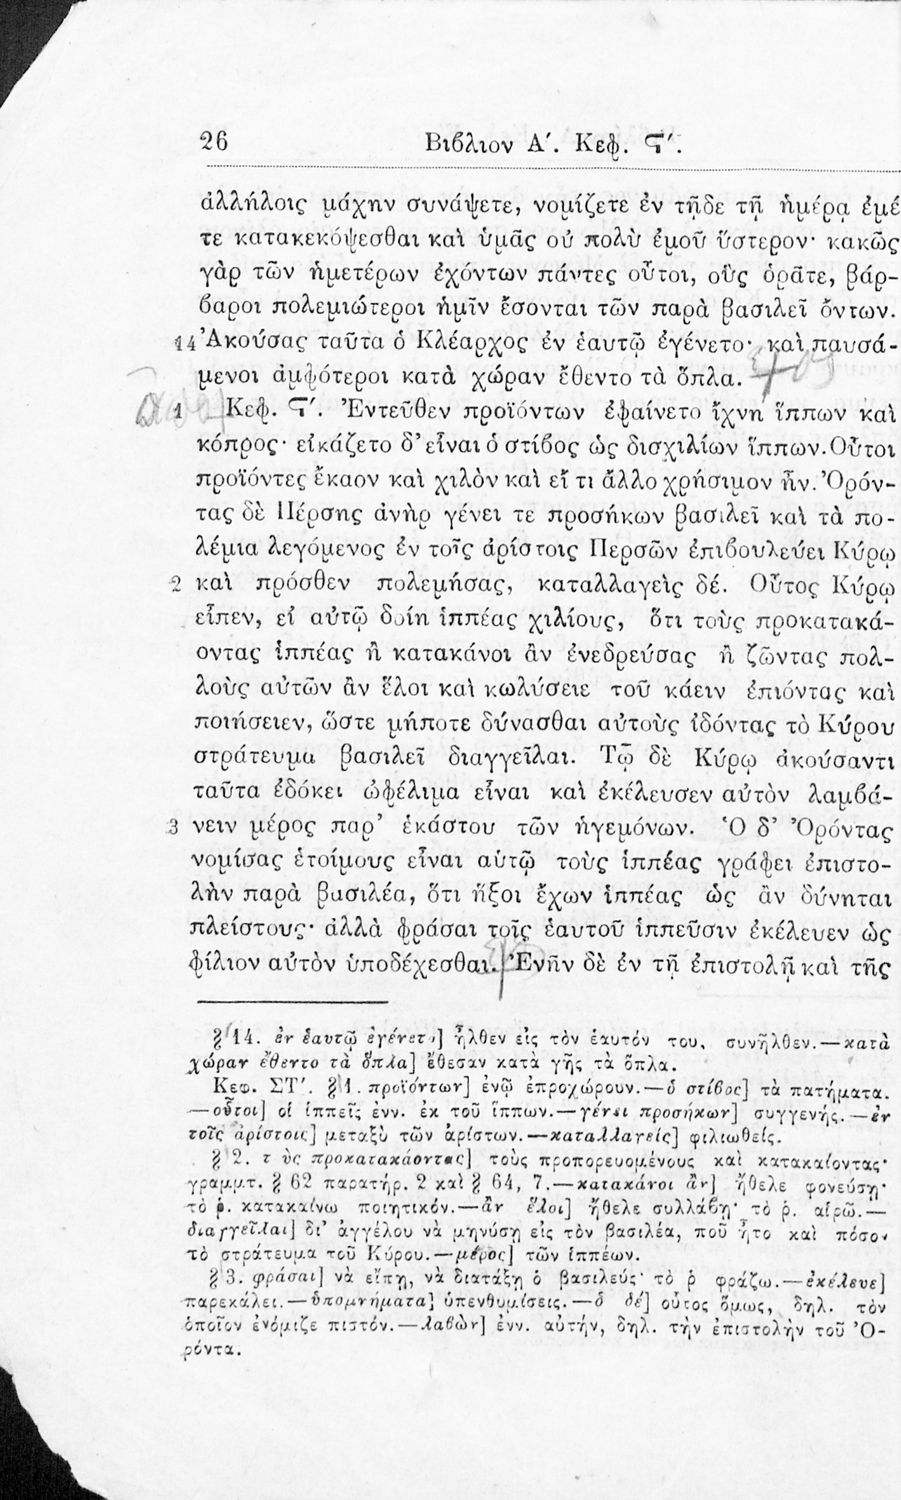 26 Βιβλιον Α΄. Κεφ. Ϛ΄.
ἀλλήλοις μάχην συνάψετε, νομίζετε ἐν τῇδε τῇ ἡμέρᾳ ἐμέ
τε κατακεκόψεσθαι καὶ ὑμᾶς οὐ πολὺ ἐμοῦ ὕστερον· κακῶς
γὰρ τῶν ἡμετέρων ἐχόντων πάντες οὗτοι, οὓς ὁρᾶτε, βάρ-
βαροι πολεμιώτεροι ἡμῖν ἔσονται τῶν παρὰ βασιλεῖ ὄντων.
14 Ἀκούσας ταῦτα ὁ Κλέαρχος ἐν ἑαυτῷ ἐγένετο· καὶ παυσά-
μενοι ἀμφότεροι κατὰ χώραν ἔθεντο τὰ ὅπλα.
1 Κεφ. Ϛ΄. Ἐντεῦθεν προϊόντων ἐφαίνετο ἴχνη ἵππων καὶ
κόπρος· εἰκάζετο δ’ εἶναι ὁ στίβος ὡς δισχιλίων ἵππων. Οὗτοι
προϊόντες ἔκαον καὶ χιλὸν καὶ εἴ τι ἄλλο χρήσιμον ἦν. Ὀρόν-
τας δὲ Πέρσης ἀνὴρ γένει τε προσήκων βασιλεῖ καὶ τὰ πο-
λέμια λεγόμενος ἐν τοῖς ἀρίστοις Περσῶν ἐπιβουλεύει Κύρῳ
2 καὶ πρόσθεν πολεμήσας, καταλλαγεὶς δέ. Οὗτος Κύρῳ
εἶπεν, εἰ αὐτῷ δοίη ἱππέας χιλίους, ὅτι τοὺς προκατακά-
οντας ἱππέας ἢ κατακάνοι ἂν ἐνεδρεύσας ἢ ζῶντας πολ-
λοὺς αὐτῶν ἂν ἕλοι καὶ κωλύσειε τοῦ κάειν ἐπιόντας καὶ
ποιήσειεν, ὥστε μήποτε δύνασθαι αὐτοὺς ἰδόντας τὸ Κύρου
στράτευμα βασιλεῖ διαγγεῖλαι. Τῷ δὲ Κύρῳ ἀκούσαντι
ταῦτα ἐδόκει ὠφέλιμα εἶναι καὶ ἐκέλευσεν αὐτὸν λαμβά-
3 νειν μέρος παρ’ ἑκάστου τῶν ἡγεμόνων. Ὁ δ’ Ὀρόντας
νομίσας ἑτοίμους εἶναι αὑτῷ τοὺς ἱππέας γράφει ἐπιστο-
λὴν παρὰ βασιλέα, ὅτι ἥξοι ἔχων ἱππέας ὡς ἂν δύνηται
πλείστους· ἀλλὰ φράσαι τοῖς ἑαυτοῦ ἱππεῦσιν ἐκέλευεν ὡς
φίλιον αὐτὸν ὑποδέχεσθαι. Ἐνῆν δὲ ἐν τῇ ἐπιστολῇ καὶ τῆς
§ 14. ἐν ἑαυτῷ ἐγένετο] ἦλθεν εἰς τὸν ἑαυτόν του, συνῆλθεν.—κατὰ
χώραν ἔθεντο τὰ ὅπλα] ἔθεσαν κατὰ γῆς τὰ ὅπλα.
Κεφ. ΣΤ΄. § 1. προϊόντων] ἐνῷ ἐπροχώρουν.—ὁ στίβος] τὰ πατήματα.
—οὗτοι] οἱ ἱππεῖς ἐνν. ἐκ τοῦ ἵππων.—γένει προσήκων] συγγενής.—ἐν
τοῖς ἀρίστοις] μεταξὺ τῶν ἀρίστων.—καταλλαγείς] φιλιωθείς.
§ 2. τοὺς προκατακάοντας] τοὺς προπορευομένους καὶ κατακαίοντας·
γραμμτ. § 62 παρατήρ. 2 καὶ § 64, 7.—κατακάνοι ἄν] ἤθελε φονεύσῃ·
τὸ ῥ. κατακαίνω ποιητικόν.—ἂν ἕλοι] ἤθελε συλλάβῃ· τὸ ῥ. αἱρῶ.—
διαγγεῖλαι] δι’ ἀγγέλου νὰ μηνύσῃ εἰς τὸν βασιλέα, ποῦ ἦτο καὶ πόσον
τὸ στράτευμα τοῦ Κύρου.—μέρος] τῶν ἱππέων.
§ 3. φράσαι] νὰ εἴπῃ, νὰ διατάξῃ ὁ βασιλεύς· τὸ ῥ φράζω.—ἐκέλευε]
παρεκάλει.—ὑπομνήματα] ὑπενθυμίσεις.—ὁ δέ] οὗτος ὅμως, δηλ. τὸν
ὁποῖον ἐνόμιζε πιστόν.—λαβών] ἐνν. αὐτήν, δηλ. τὴν ἐπιστολὴν τοῦ Ὀ-
ρόντα.